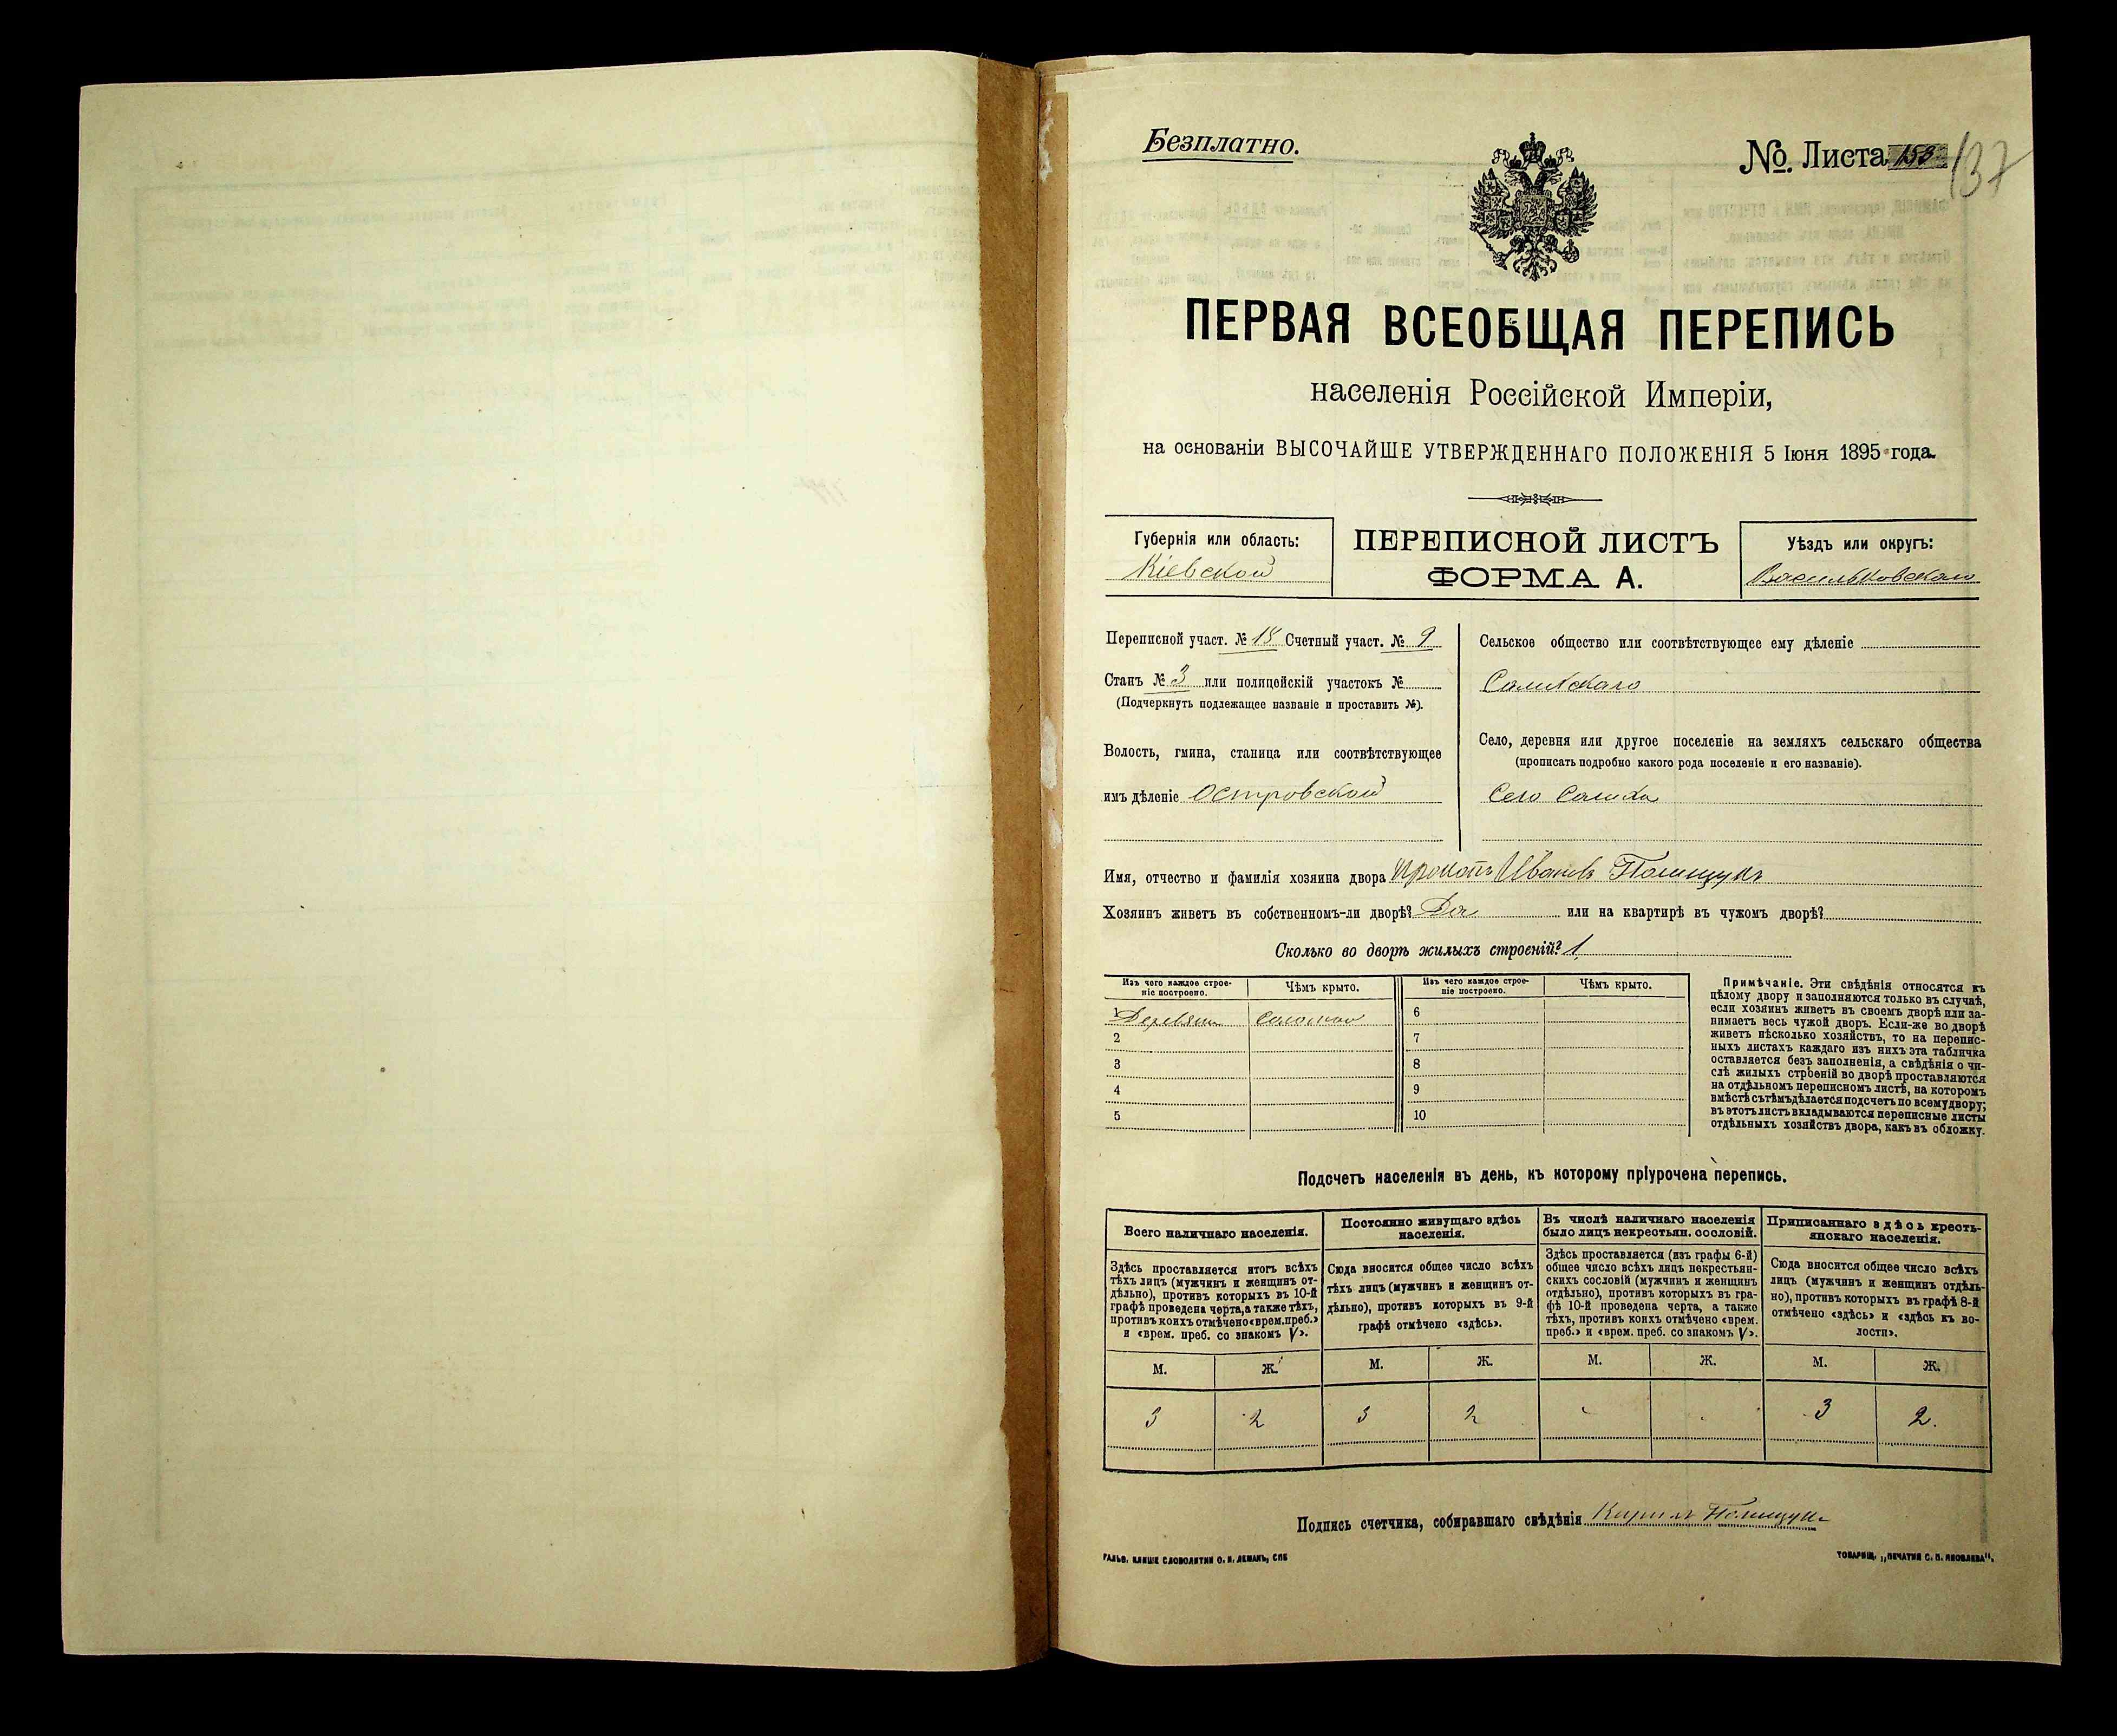 Безплатно.
№ Листа 153
137
ПЕРВАЯ ВСЕОБЩАЯ ПЕРЕПИСЬ
населенія Россійской Имперіи,
на основаніи ВЫСОЧАЙШЕ УТВЕРЖДЕННАГО ПОЛОЖЕНІЯ 5 Іюня 1895 года.
Губернія или область:
Кіевской
ПЕРЕПИСНОЙ ЛИСТЪ
ФОРМА А.
Уѣздъ или округъ:
Васильковскаго
Переписной участ. № 18 Счетный участ. № 9
Станъ № 3 или полицейскій участокъ №
(Подчеркнуть подлежащее названіе и проставить №).
Волость, гмина, станица или соотвѣтствующее
имъ дѣленіе Островской
Сельское общество или соотвѣтствующее ему дѣленіе
Село, деревня или другое поселеніе на земляхъ сельскаго общества
(прописать подробно какого рода поселеніе и его названіе).
Село
Имя, отчество и фамилія хозяина двора Иванов Полищукъ
Хозяинъ живетъ въ собственномъ-ли дворѣ? Да или на квартирѣ въ чужомъ дворѣ?
Сколько во дворѣ жилыхъ строеній? 1
Изъ чего каждое строе-
ніе построено.
Чѣмъ крыто.
Изъ чего каждое строе-
ніе построено.
Чѣмъ крыто.
1 Деревян Соломою 6
2 7
3 8
4 9
5 10
Примѣчаніе. Эти свѣдѣнія относятся къ
цѣлому двору и заполняются только въ случаѣ,
если хозяинъ живетъ въ своемъ дворѣ или за-
нимаетъ весь чужой дворъ. Если-же во дворѣ
живетъ нѣсколько хозяйствъ, то на перепис-
ныхъ листахъ каждаго изъ нихъ эта табличка
оставляется безъ заполненія, а свѣдѣнія о чи-
слѣ жилыхъ строеній во дворѣ проставляются
на отдѣльномъ переписномъ листѣ, на которомъ
вмѣстѣ съ тѣмъ дѣлается подсчетъ по всему двору;
въ этотъ листъ вкладываются переписные листы
отдѣльныхъ хозяйствъ двора, какъ въ обложку.
Подсчетъ населенія въ день, къ которому пріурочена перепись.
Всего наличнаго населенія.
Здѣсь проставляется итогъ всѣхъ
тѣхъ лицъ (мужчинъ и женщинъ от-
дѣльно), противъ которыхъ въ 10-й
графѣ проведена черта, а также тѣхъ,
противъ коихъ отмѣчено «врем. преб.»
и «врем. преб. со знакомъ V».
Постоянно живущаго здѣсь
населенія.
Сюда вносится общее число всѣхъ
тѣхъ лицъ (мужчинъ и женщинъ от-
дѣльно), противъ которыхъ въ 9-й
графѣ отмѣчено «здѣсь».
Въ числѣ наличнаго населенія
было лицъ некрестьян. сословій.
Здѣсь проставляется (изъ графы 6-й)
общее число всѣхъ лицъ некрестьян-
скихъ сословій (мужчинъ и женщинъ
отдѣльно), противъ которыхъ въ гра-
фѣ 10-й проведена черта, а также
тѣхъ, противъ коихъ отмѣчено «врем.
преб.» и «врем. преб. со знакомъ V».
Приписаннаго здѣсь кресть-
янскаго населенія.
Сюда вносится общее число всѣхъ
лицъ (мужчинъ и женщинъ отдѣль-
но), противъ которыхъ въ графѣ 8-й
отмѣчено «здѣсь» и «здѣсь къ во-
лости».
М. Ж. М. Ж. М. Ж. М. Ж.
3 2 3 2 3 2.
Подпись счетчика, собиравшаго свѣдѣнія Кирил Полищукъ
ГАЛЬВ. КЛИШЕ СЛОВОЛИТНИ О. И. ЛЕМАНЪ, СПБ
ТОВАРИЩ. „ПЕЧАТНЯ С. П. ЯКОВЛЕВА“.